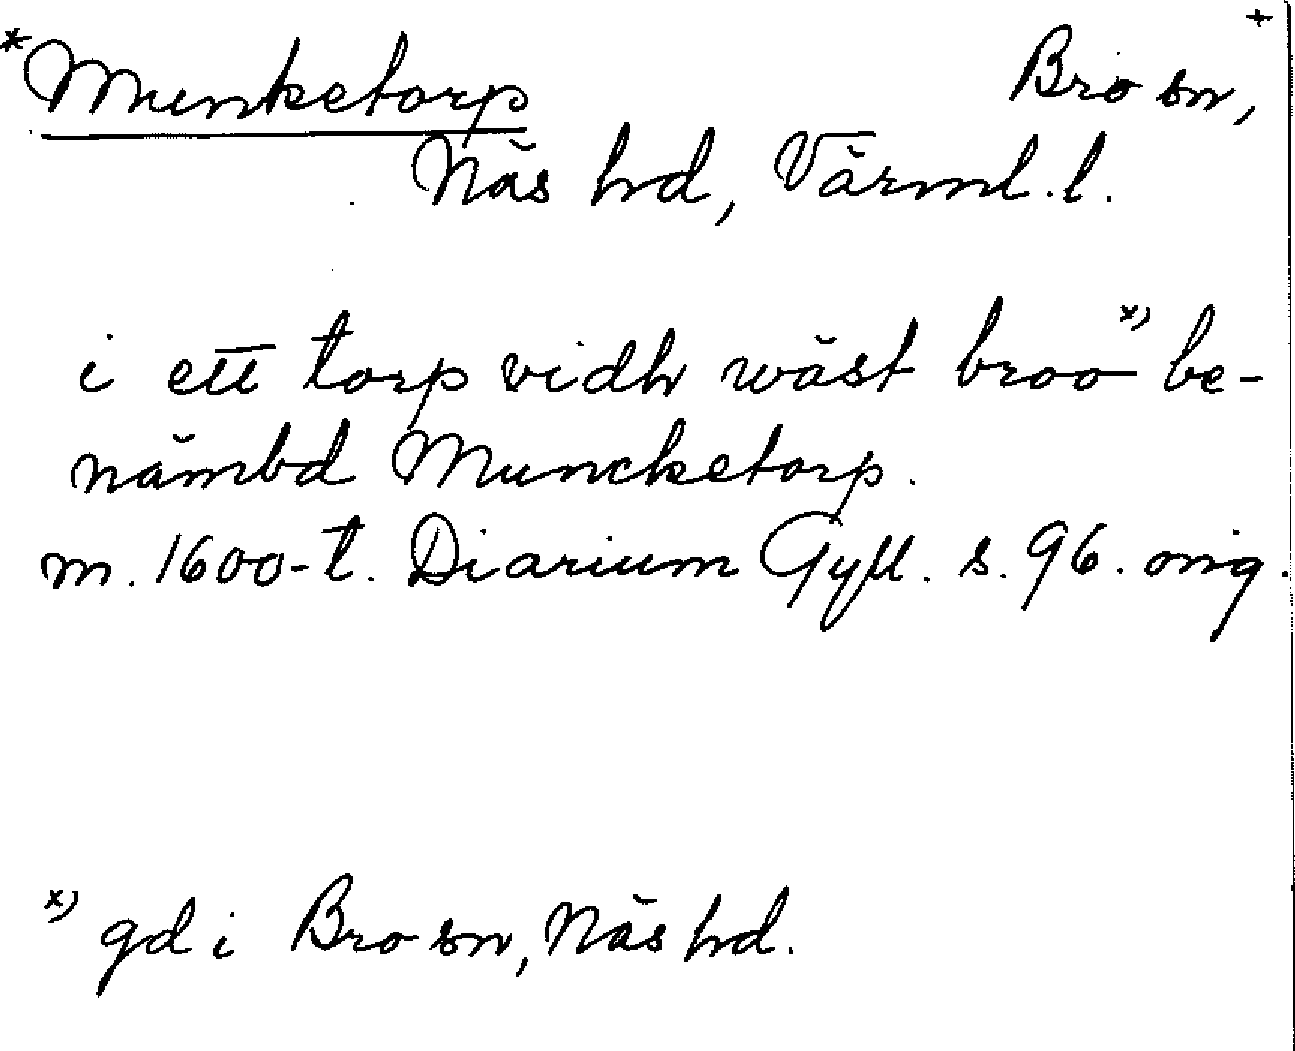 *Munketorp Bro sn, +
Näs hd, Värml. l.
i ett torp vidh wäst broo x) be-
nämbd Muncketorp.
m. 1600-t. Diarium Gyll. s. 96. orig.
x) gd i Bro sn, Näs hd.